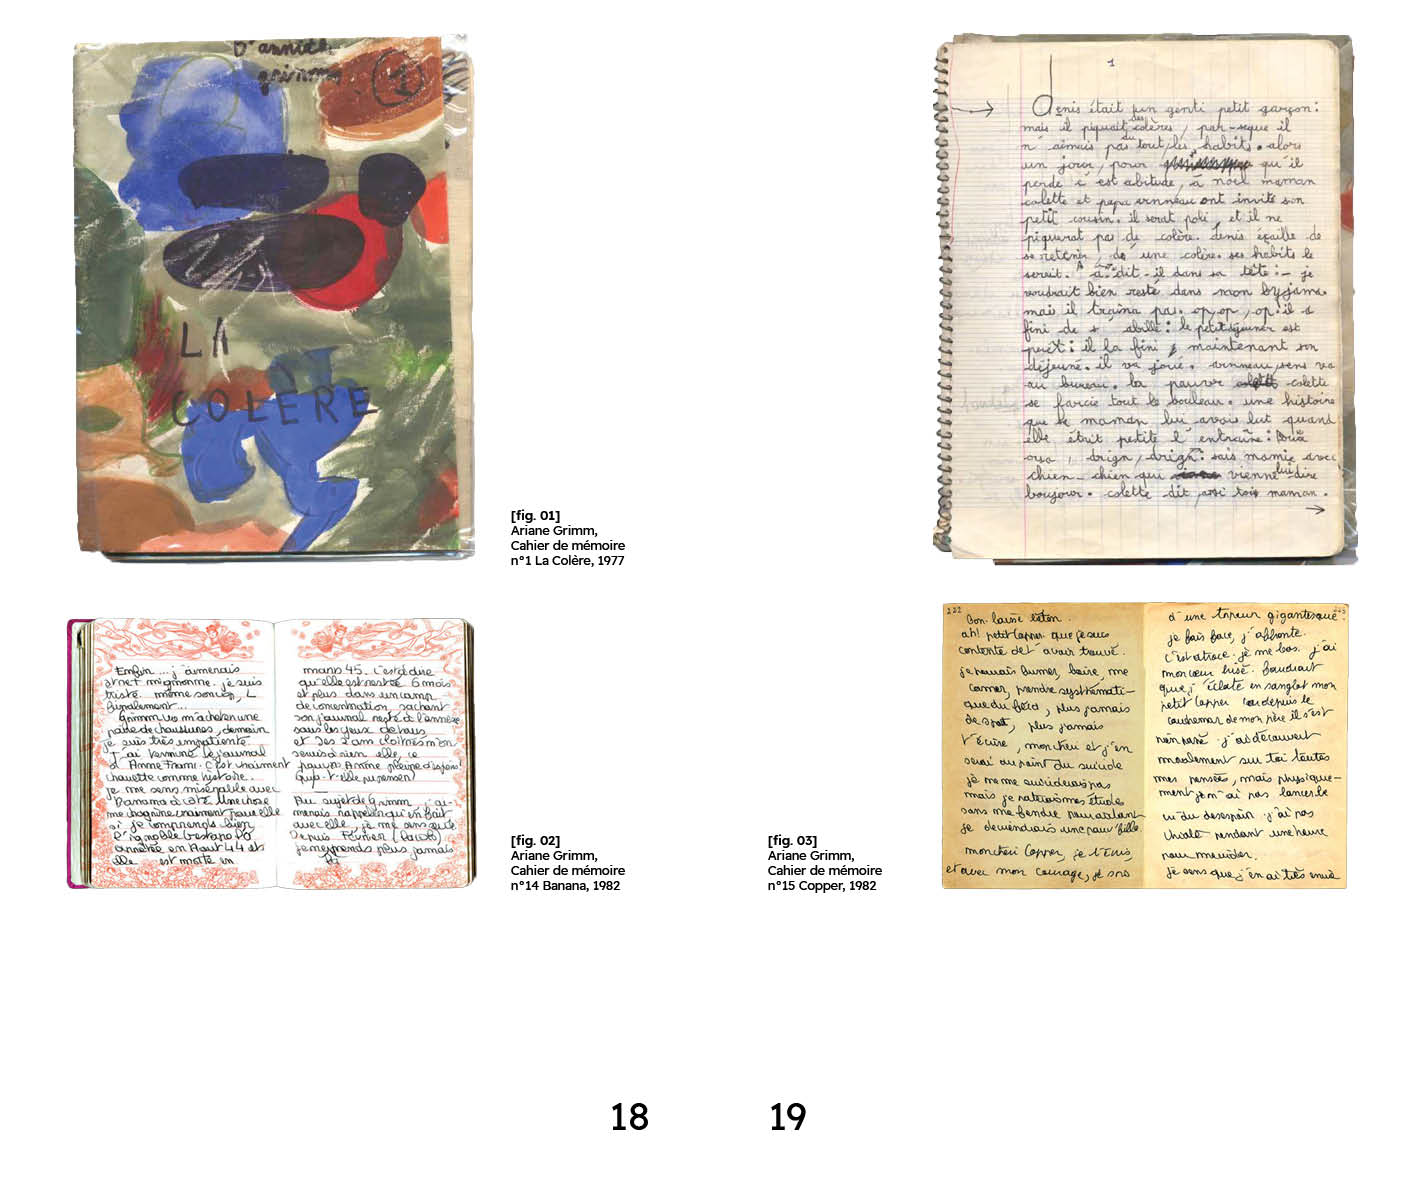 D'annick
grimm
1
LA
COLÈRE
[fig. 01]
Ariane Grimm,
Cahier de mémoire
n°1 La Colère, 1977
1
Denis était un genti petit garçon :
mais il piquait des colères, par-seque il
n aimais pas du tout les habits. alors
un jour, pour qu'il
perde c'est abitude, à noel maman
colette et papa vonneau ont invité son
petit cousin. il serat poli, et il ne
piquerat pas de colère. denis éçaille de
se retenir, de une colère. ses habits le
serait. à dit-il dans sa tête :- je
voudrait bien resté dans mon byjama.
mais il traîna pas. op, op, op. il s
fini de s'abillé : le petit déjeuner est
peret : il la fini maintenant son
déjeuné. il va joué. vonneau, sens va
au bureau. la pauvre colette
se farcie tout le bouleau. une histoire
que sa maman lui avais lut quand
elle était petite l'entraîne :
drign, drign : sais mamie avec
chien-chien qui vienne lui dire
boujour. colette dit maman.
Enfin ... j'aimerais
et net mignonne. je suis
triste même son cop, L
finalement...
Grimm va m'acheter une
paire de chaussures, demain
je suis très impatiente.
J'ai terminé le journal
d'Anne Frank. C'est vraiment
chouette comme histoire.
je me sens misérable avec
banana à côté. Une chose
me chagrine vraiment pour elle
si je comprends bien
l'ignoble Gestapo l'a
arrêtée en Aout 44 et
elle est morte en
mars 45. C'est à dire
qu'elle est restée 6 mois
et plus dans un camp
de concentration, sachant
son journal resté à l'annexe
sous les yeux de tous
et ses 2 ans cloîtrés n'on
servis à rien elle, ce
pauvre Anne pleine d'espoirs!
Qu'a-t-elle pu penser?
Au sujet de Grimm j'ai-
merais rappeler qu'en fait
avec elle, je me sens seule
Depuis Février
je ne prends plus jamais
[fig. 02]
Ariane Grimm,
Cahier de mémoire
n°14 Banana, 1982
[fig. 03]
Ariane Grimm,
Cahier de mémoire
n°15 Copper, 1982
222
bon laisse béton.
ah! petit Copper que je suis
contente de t'avoir trouvé.
je pouvais fumer, boire, me
camer, prendre systémati-
quement du fric, plus jamais
de sport, plus jamais
t'écrire, mon chéri et j'en
serai au point du suicide
je ne me suiciderais pas
mais je raterai mes études
sans me fendre pour autant
je deviendrais une pauv' fille.
mon chéri Copper, je t'écris,
et avec mon courage, je sors
223
d'une torpeur gigantesque.
je fais face, j'affronte.
C'est atroce. je me bas. j'ai
mon cœur brisé. Faudrait
que j'éclate en sanglot mon
petit Copper car depuis le
cauchemar de mon père il s'est
rien passé. j'ai découvert
moralement sur toi toutes
mes pensées, mais physique-
ment je n'ai pas lancé le
cri du désespoir. j'ai pas
chialé pendant une heure
pour me vider.
je sens que j'en ai très envie
18
19